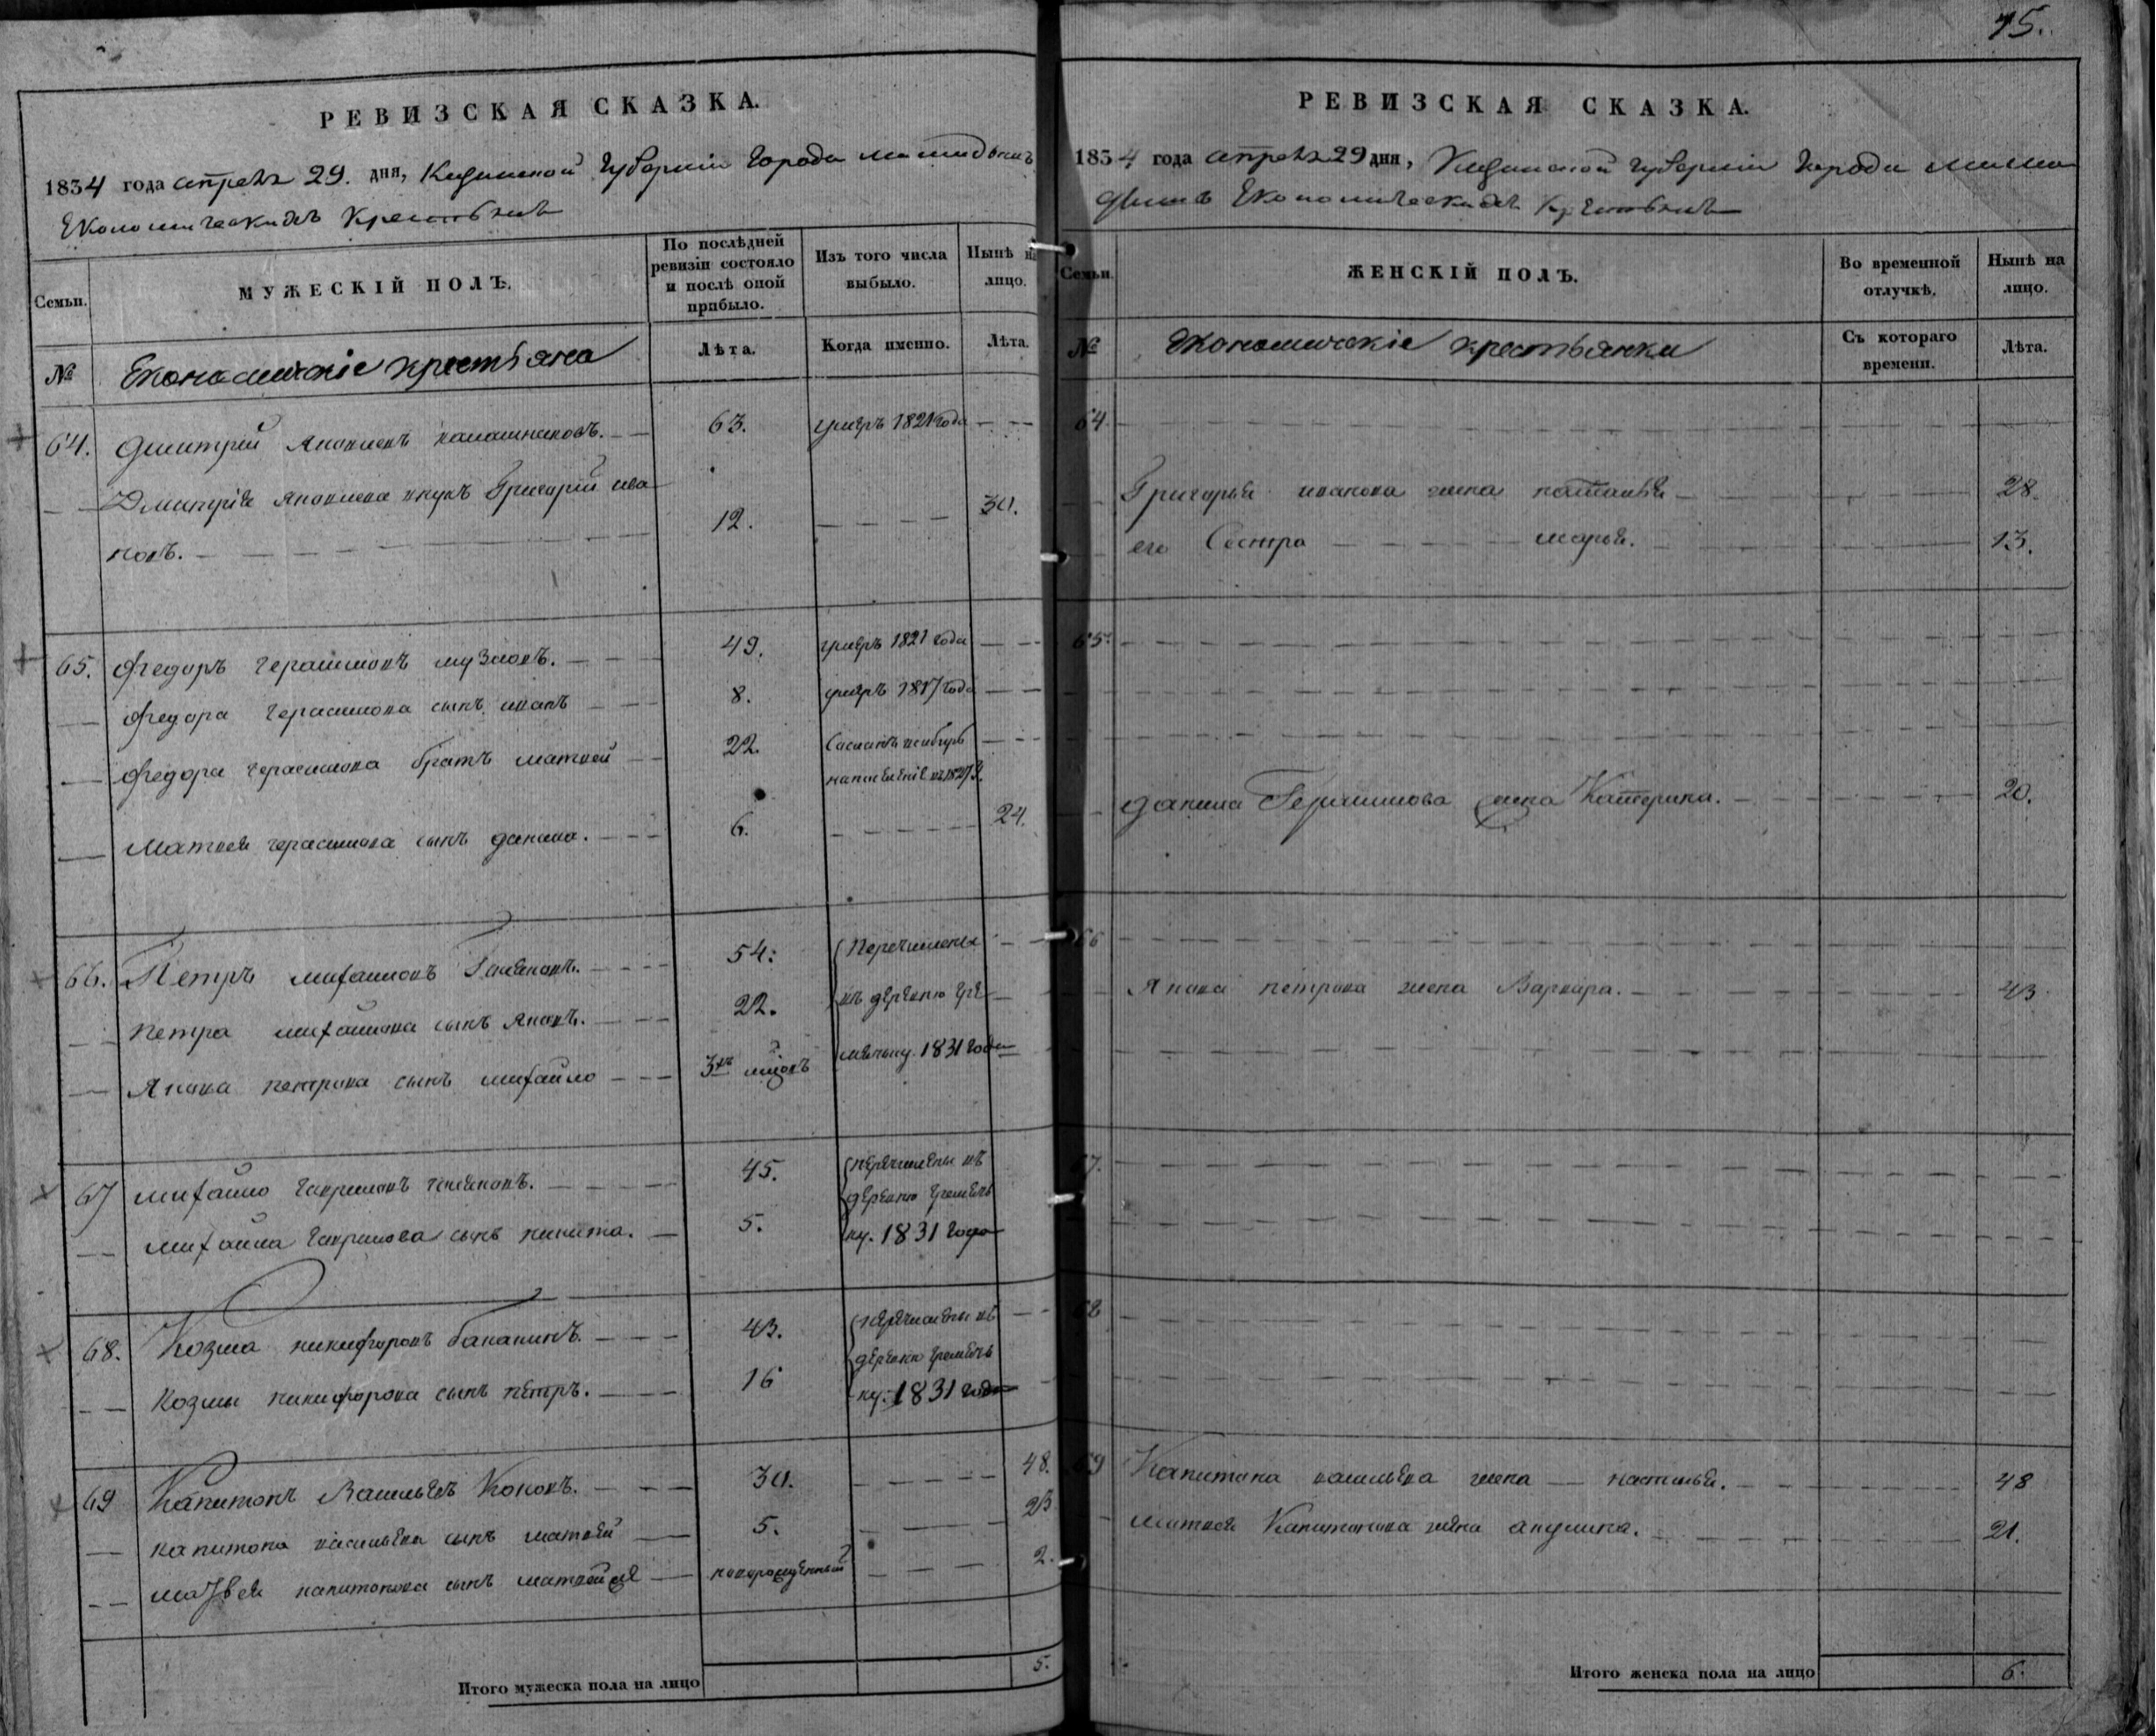 РЕВИЗСКАЯ СКАЗКА.
1834 года апреля 29. дня, губернии города
Економических крестьян
Семьи.
МУЖЕСКІЙ ПОЛЪ.
По послѣдней ревизіи состояло и послѣ оной прибыло.
Изъ того числа выбыло.
Нынѣ на лицо.
№
Економическіе крестьяна
Лѣта.
Когда именно.
Лѣта.
64. Дмитрей 63. умеръ 1821 года
Дмитрія внукъ Григорий ива
новъ. 12. 30.
65. Федоръ Герасимовъ 49. умеръ 1821 года
Федора Герасимова сынъ иванъ 8. умеръ 1817 года
Федора Герасимова братъ матвей 22. Сосланъ
6. 24.
Матвея герасимова сынъ данило.
66. Петръ михайловъ 54. Перечислены
Петра михайлова сынъ 22. въ деревню Гре
петрова сынъ михайло 3хъ 1831 года
67 михайло гаврилов 45. перечислены въ
деревню
михайла гаврилова сынъ никита. 5. ку. 1831 года
68. Козма никифоровъ 43. перечислены въ
деревню
Козмы никифорова сынъ петръ. 16 ку. 1831 года
69 Капитонъ Васильевъ 30. 48.
капитона васильева сынъ матвей 5. 23
матвея капитонова сынъ матвей же новорожденный 2.
Итого мужеска пола на лицо 5.
75.
РЕВИЗСКАЯ СКАЗКА.
1834 года апреля 29 дня, губернии города
Економических крестьян
Семьи.
ЖЕНСКІЙ ПОЛЪ.
Во временной отлучкѣ.
Нынѣ на лицо.
№
Економическіе крестьянки
Съ котораго времени.
Лѣта.
64
Григорья иванова жена наталья 28.
его Сестра марья. 13.
65.
данила Герасимова жена Катерина. 20.
66
петрова жена Варвара. 43
67.
68
69 Капитона васильева жена настасья. 48
матвея Капитонова жена акулина. 21.
Итого женска пола на лицо 6.